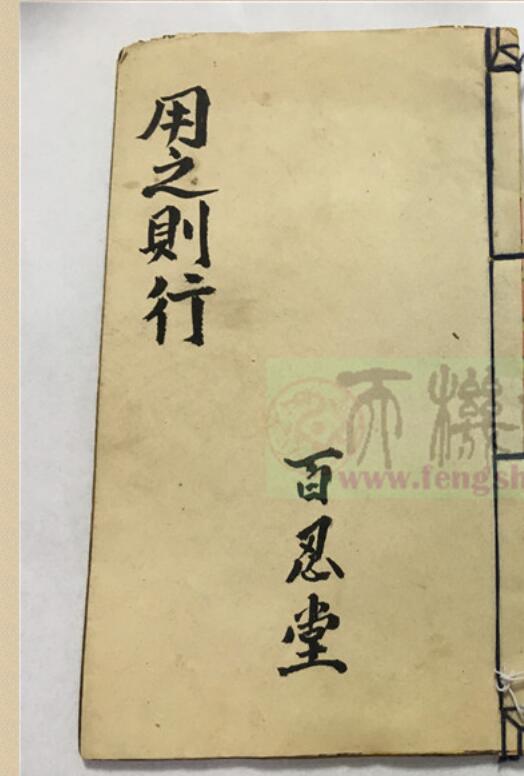 用之則行
百忍堂
天機
www.fengsh